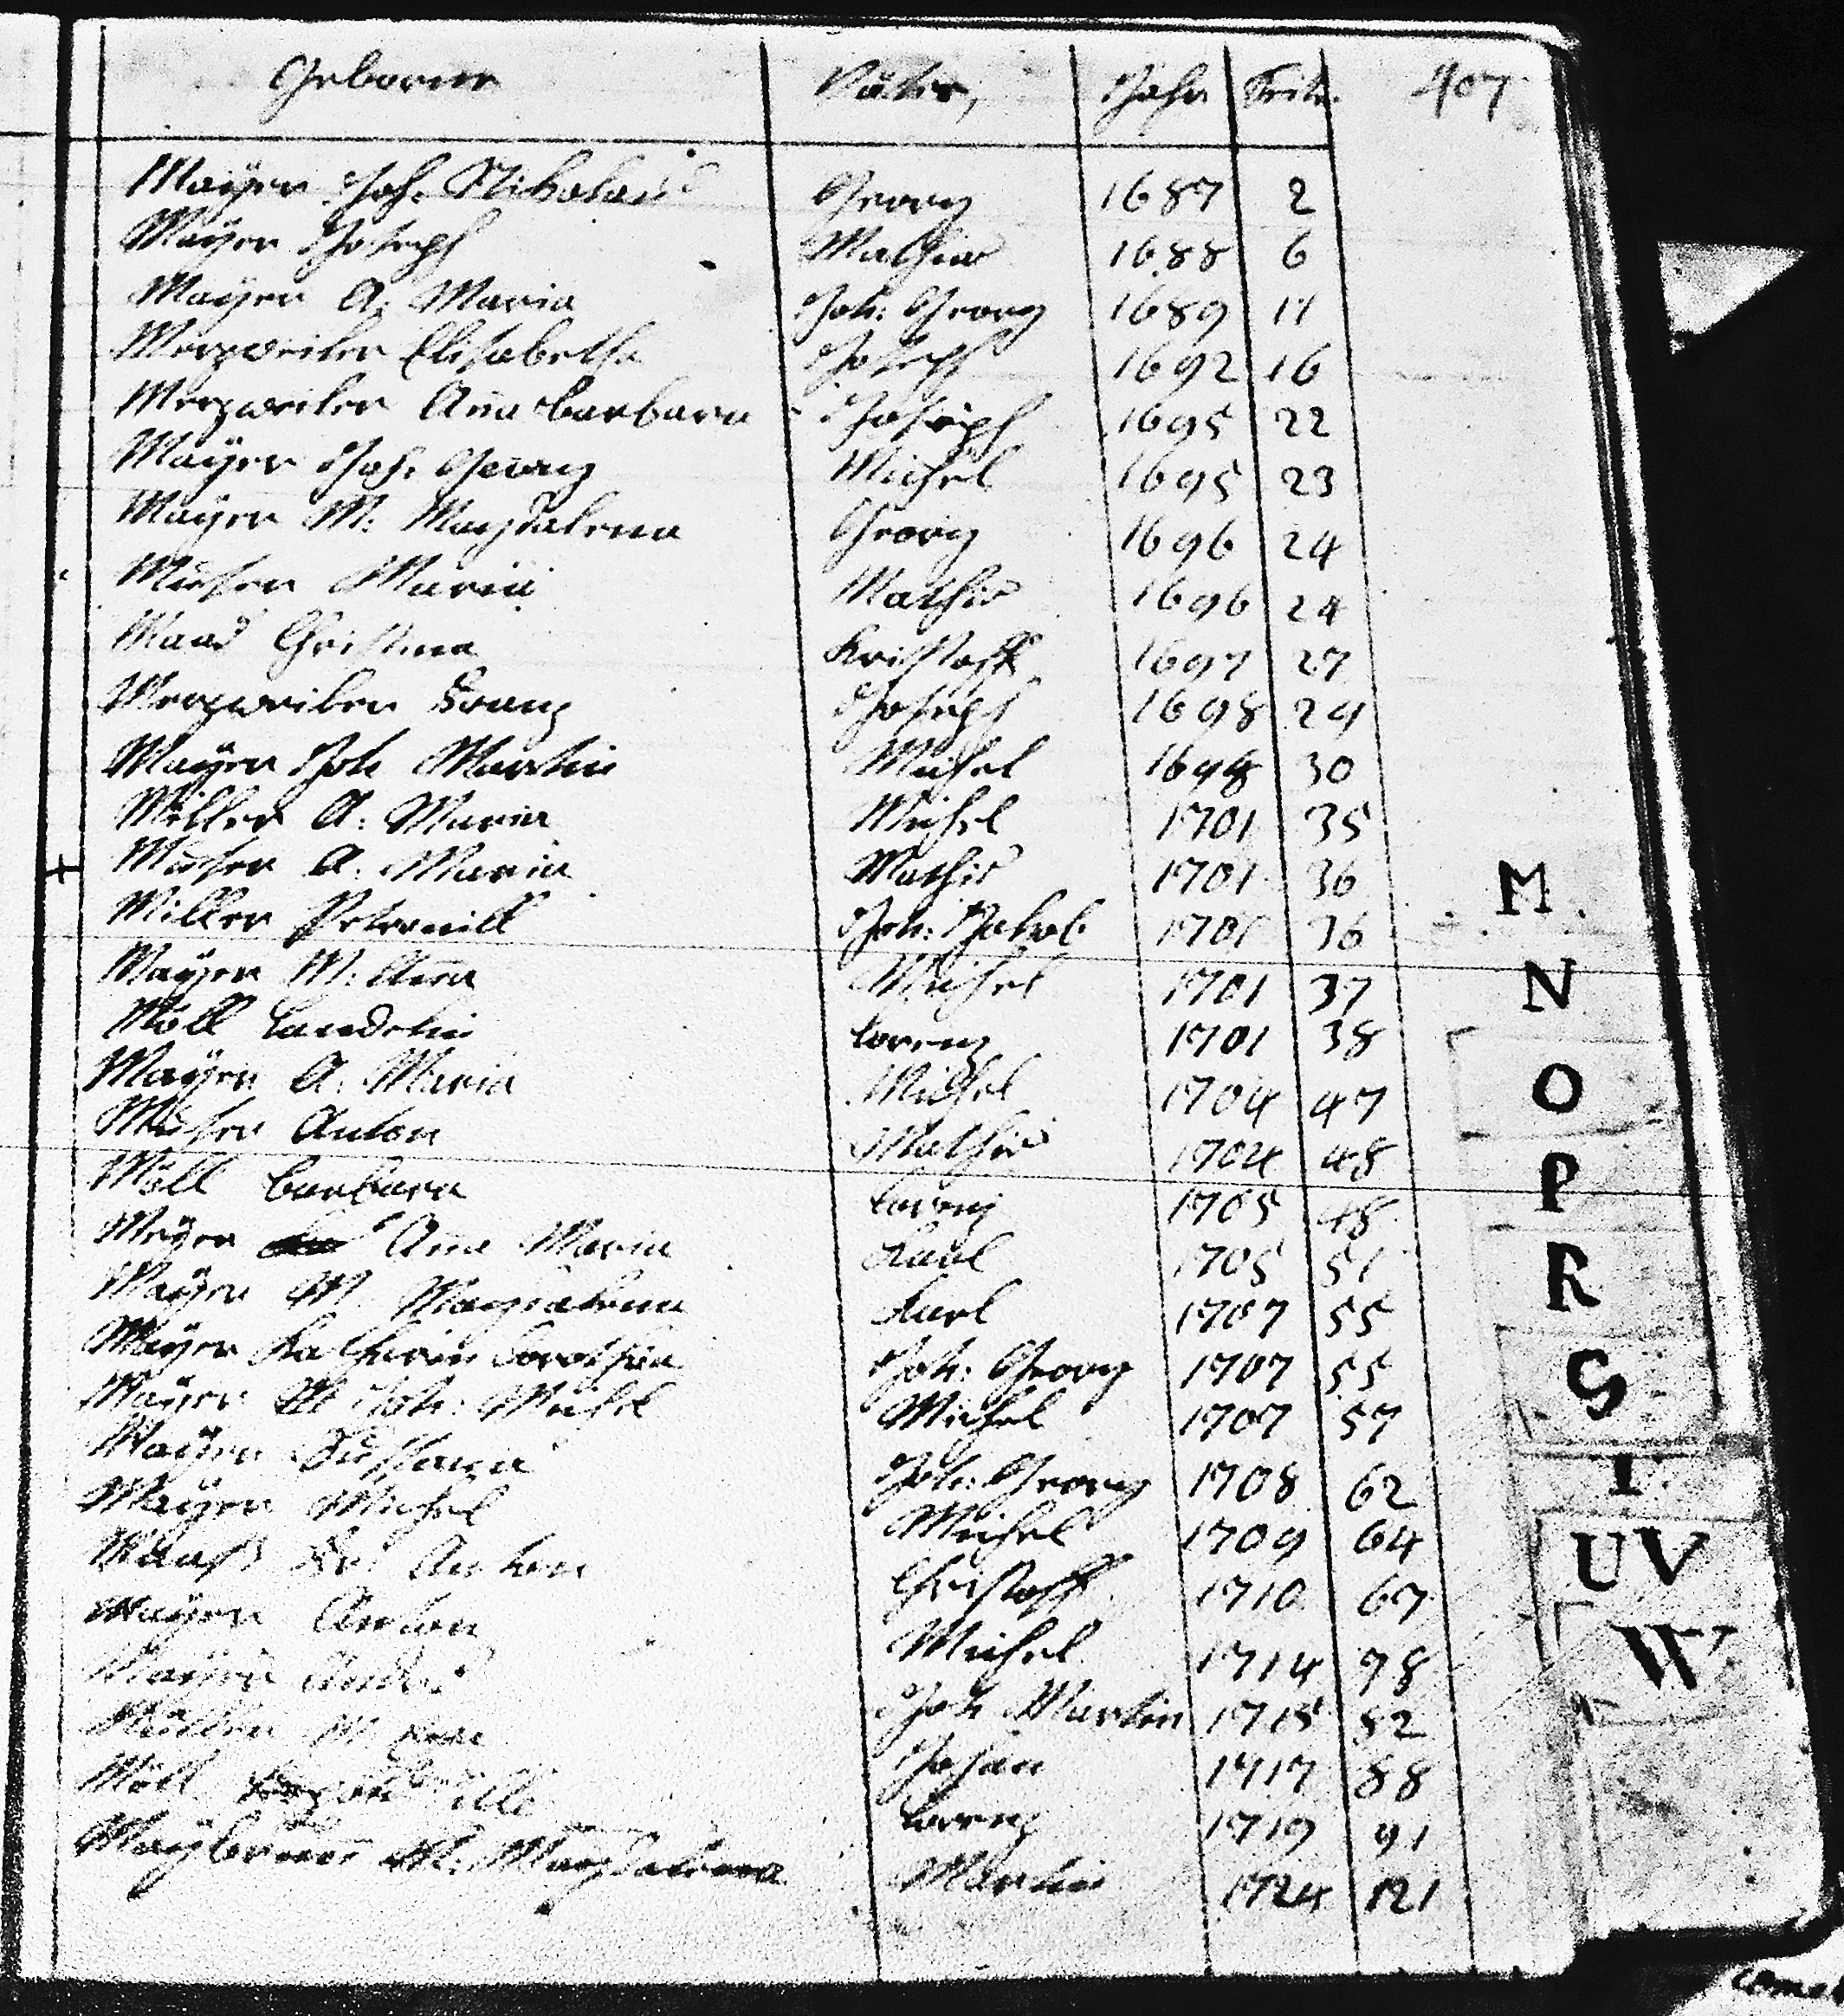 Geborne Väter, Jahr Seite. 407
Mayer Joh. Nikolaus Georg 1687 2
Mayer Joseph Mathias 1688 6
Mayer A. Maria Joh: Georg 1689 11
Merzweiler Elisabetha Joseph 1692 16
Merzweiler Aña Barbara Joseph 1695 22
Mayer Joh. Georg Michel 1695 23
Mayer M: Magdalena Georg 1696 24
Musser Maria Mathis 1696 24
Maas Christina Kristoff 1697 27
Merzweiler Franz Joseph 1698 29
Mayer Joh Martin Michel 1698 30
Miller A: Maria Michel 1701 35
Musser A. Maria Mathis 1701 36
Miller Petronill Joh: Jakob 1701 36
Mayer M: Aña Michel 1701 37
Möll Landolin Lorenz 1701 38
Mayer A. Maria Michel 1704 47
Musser Anton Mathis 1704 48
Möll Barbara Lorenz 1705 48
Meyer Aña Maria Karl 1705 51
Mayer M. Magdalena Karl 1707 55
Mayer Katharin Dorothea Joh: Georg 1707 55
Mayer Joh: Michel Michel 1707 57
Mayer Susanna Joh: Georg 1708 62
Mayer Michel Michel 1709 64
Maas Anton Christoff 1710 67
Mayer Anton Michel 1714 78
Mayer Joh Martin 1715 82
M. Johan 1717 88
Möll Lorenz 1719 91
M: Magdalena Martin 1724 121
M
N
O
P
R
S
T
UV
W